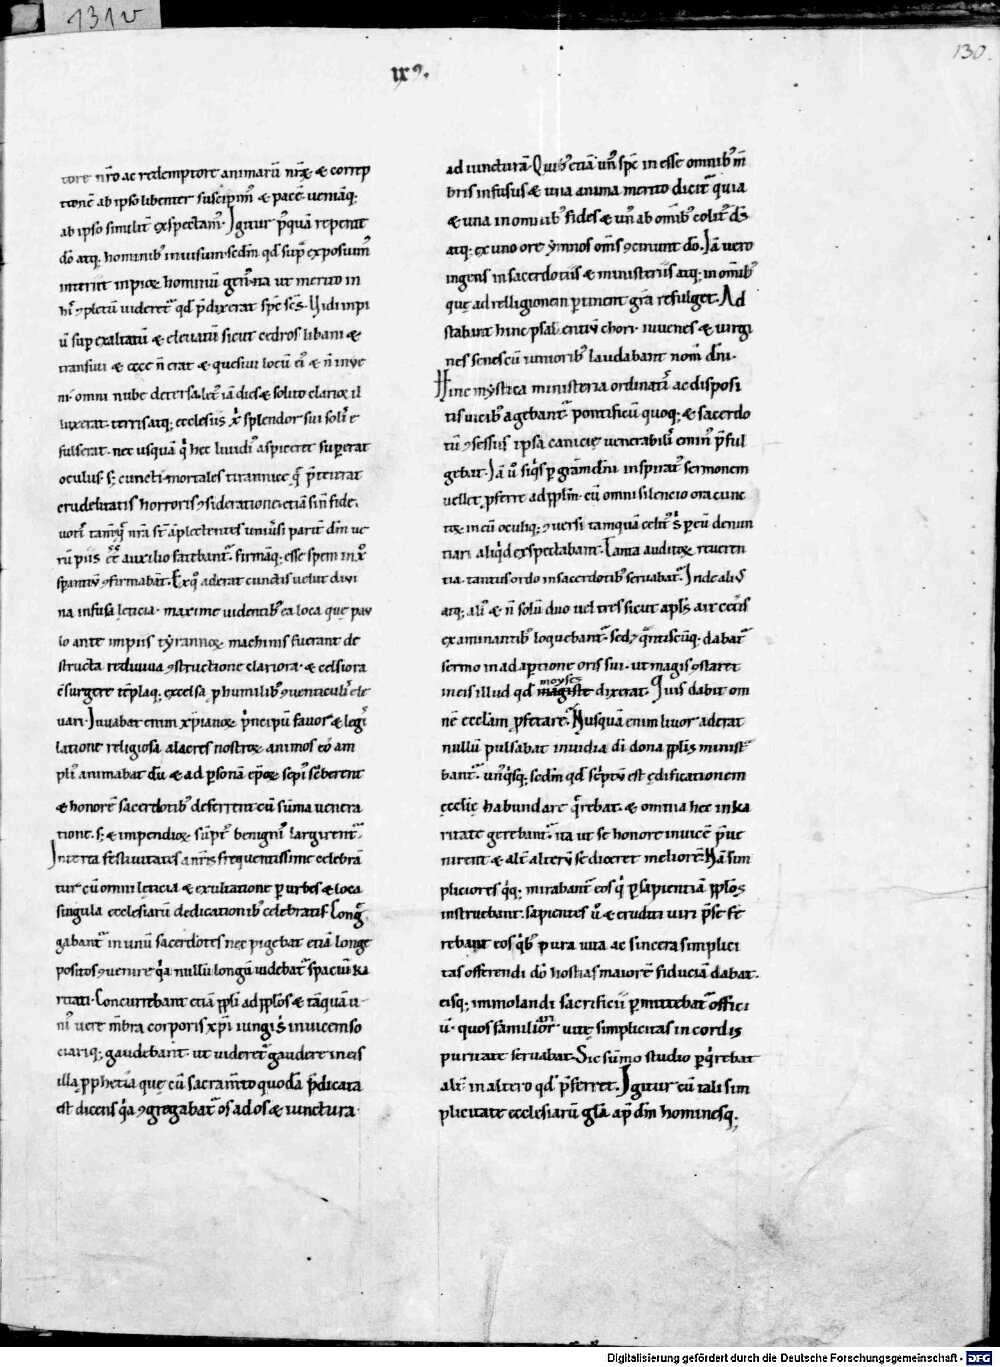 131v
130.
ix9.
tore nr̄o ac redemptore animarū nr̄aꝝ & correp
tionē ab ipso libenter suscipim᷒ & pacē ueniāq;
ab ipso similit̄ exspectam᷒. Igitur p᷒quā repenit
dō atq, hominib᷒ inuisum scd̄m qd̄ sup̄ exposuim᷒
interiit inpioꝝ hominū gen᷒ ita ut merito in
hi᷒ ꝯpletū uideret᷒ qd̄ p̄dixerat spc̄ sc̄s. Uidi inpi
ū sup exaltatū & eleuatū sicut cedros libani &
transiui & ecce n̄ erat & quesiui locū ei᷒ & n̄ inue
ni. omni nube detersa. let᷒ iā dies & solito clarior il
luxerat. terris atq; ecclesiis xp̄i splendor sui solit᷒ e
fulserat. nec usquā qi hec liuid᷒ aspiceret superat
oculus. s; cuncti mortales tirannice q᷒ p̄terierat
crudelitatis horroris ꝯsideratione. etiā si n̄ fide.
uoti᷒ tam̄ nr̄a st̄ āplectentes uniūsi parit̄ dm̄ ue
rū piis ēē auxilio fatebant᷒. firmāq; esse spem in xp̄
sperantiū ꝯfirmabāt. Exq᷒ aderat cunctis uelut diui
na infusa leticia. maxime uidentib᷒ ea loca que pau
lo ante impiis tyrannoꝝ machinis fuerant de
structa rediuiua ꝯstructione clariora & celsiora
ēsurgere tēplaq; excelsa p humilib᷒ ꝯuenticulis ele
uari. Iuuabat enim xp̄ianoꝝ p̄ncipū fauor & legis
latione religiosa alacres nostroꝝ animos eō am
pli᷒ animabat dū & ad p̱sonā ep̄oꝝ sepi᷒ sc̄berent
& honorē sacerdotib᷒ deferrent cū sūma uenera
tione. s; & impendioꝝ sūpt᷒ benigni᷒ largirent᷒
Interea festiuitates anr̄is frequentissime celebrā
tur cū omni leticia & exultatione p̱ urbes & loca
singula ecclesiarū dedicationib᷒ celebratis. Congre
gabant᷒ in unū sacerdotes nec pigebat etiā longe
positos ꝯuenire qa nullū longū uidebat᷒ spaciū ka
ritati. Concurrebant etiā ppl̄i ad ppl̄os & tāquā u
ni᷒ uere mēbra corporis xp̄i iungi sibi inuicem so
ciariq; gaudebant. ut uideret᷒ gaudere in eis
illa p̱phetia que cū sacram̄to quodā p̄dicata
est dicens qa ꝯgregabat᷒ os ad os & iunctura
ad iuncturā. Quib᷒ etiā un᷒ spc̄ in esse omnib᷒ m̄
bris infusus & una anima merito dicit᷒ quia
& una in omnib᷒ fides & un᷒ ab om̄ib᷒ colit᷒ d᷒s
atq; ex uno ore ymnos om̄s ꝯcinunt dō. Iā uero
ingens in sacerdotiis & ministeriis atq; in om̄ib᷒
que ad relligionem p̱tinent gr̄a refulget. Ad
stabant hinc psallentiū chori iuuenes & uirgi
nes senes cū iuniorib᷒ laudabant nom̄ dn̄i.
Hinc mystica ministeria ordinatī ac disposi
tis uicib᷒ agebant᷒ pontificū quoq; & sacerdo
tū ꝯsessus ipsā canicię uenerabilis emin᷒ p̄ful
gebat. Iā u᷒ siq̄s p̱ grām dn̄i inspirat᷒ sermonem
uellet pferre ad ppl̄m. cū omni silencio ora cunc
toꝝ in eū oculiq; ꝯuersi tamquā celit᷒ s p̱ eū denun
tiari aliqd exspectabant. Tanta auditoꝝ reueren
tia. tantus ordo in sacerdotib᷒ seruabat᷒. Inde alius
atq; ali᷒ & n̄ solū duo uel tres sicut apl̄s ait ceteris
examinantib᷒ loquebant᷒. sed ꝯ q̄ntiscūq; dabat᷒
sermo in ad aptione oris sui. ut magis ꝯstaret
in eis illud qd̄ moyses magiste dixerat. Quis dabit om
nē eccl̄am pfetare. Nusquā enim liuor aderat
nullū pulsabat inuidia di dona ppl̄is minist᷒
bant᷒. un᷒qsq; scd̄m qd̄ sc̄ptū est ędificationem
ęcclię habundare q̄rebat. & omnia hec in ka
ritate gerebant᷒. ita ut se honore inuicē p̄ue
nirent & alt̄ alterū se diceret meliorē. Nā sim
pliciores qq; mirabant᷒ eos qi p̱ sapientiā ppl̄os
instruebant. sapientes u᷒ & eruditi uiri p̄se fe
rebant eos qb᷒ pura uita ac sincera simplici
tas offerendi dō hostias maiorē fiduciā dabat.
eisq; immolandi sacrificiū p̱mittebat᷒ offici
ū. quos familiarior uitę simplicitas in cordis
puritate seruabat. Sic sūmo studio p̱qrebat
alt̄ in altero qd̄ p̄ferret. Igitur cū tali sim
plicitate ecclesiarū gl̄a apd̄ dm̄ hominesq;
Digitalisierung gefördert durch die Deutsche Forschungsgemeinschaft - DFG